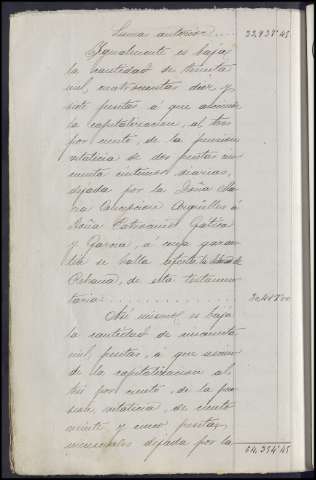 Suma anterior .... 33,938'45
Igualmente es baja
la cantidad de treinta
mil cuatrocientas diez y
siete pesetas, á que asciende
la capitalización, al tres
por ciento, de la pension
vitalicia de dos pesetas cin
cuenta céntimos diarias,
dejada por la Doña Ma
ria Concepcion Arguelles á
Doña Gatica
y Garcia, á cuya garan
tia se halla afecta la de
de esta testamen
taria
Asi mismo es baja
la cantidad de cincuenta
mil pesetas, á que ascien
de la capitalizacion al
tres por ciento, de la pen
sion vitalicia, de ciento
veinte y cinco pesetas
mensuales dejada por la
64,354'45